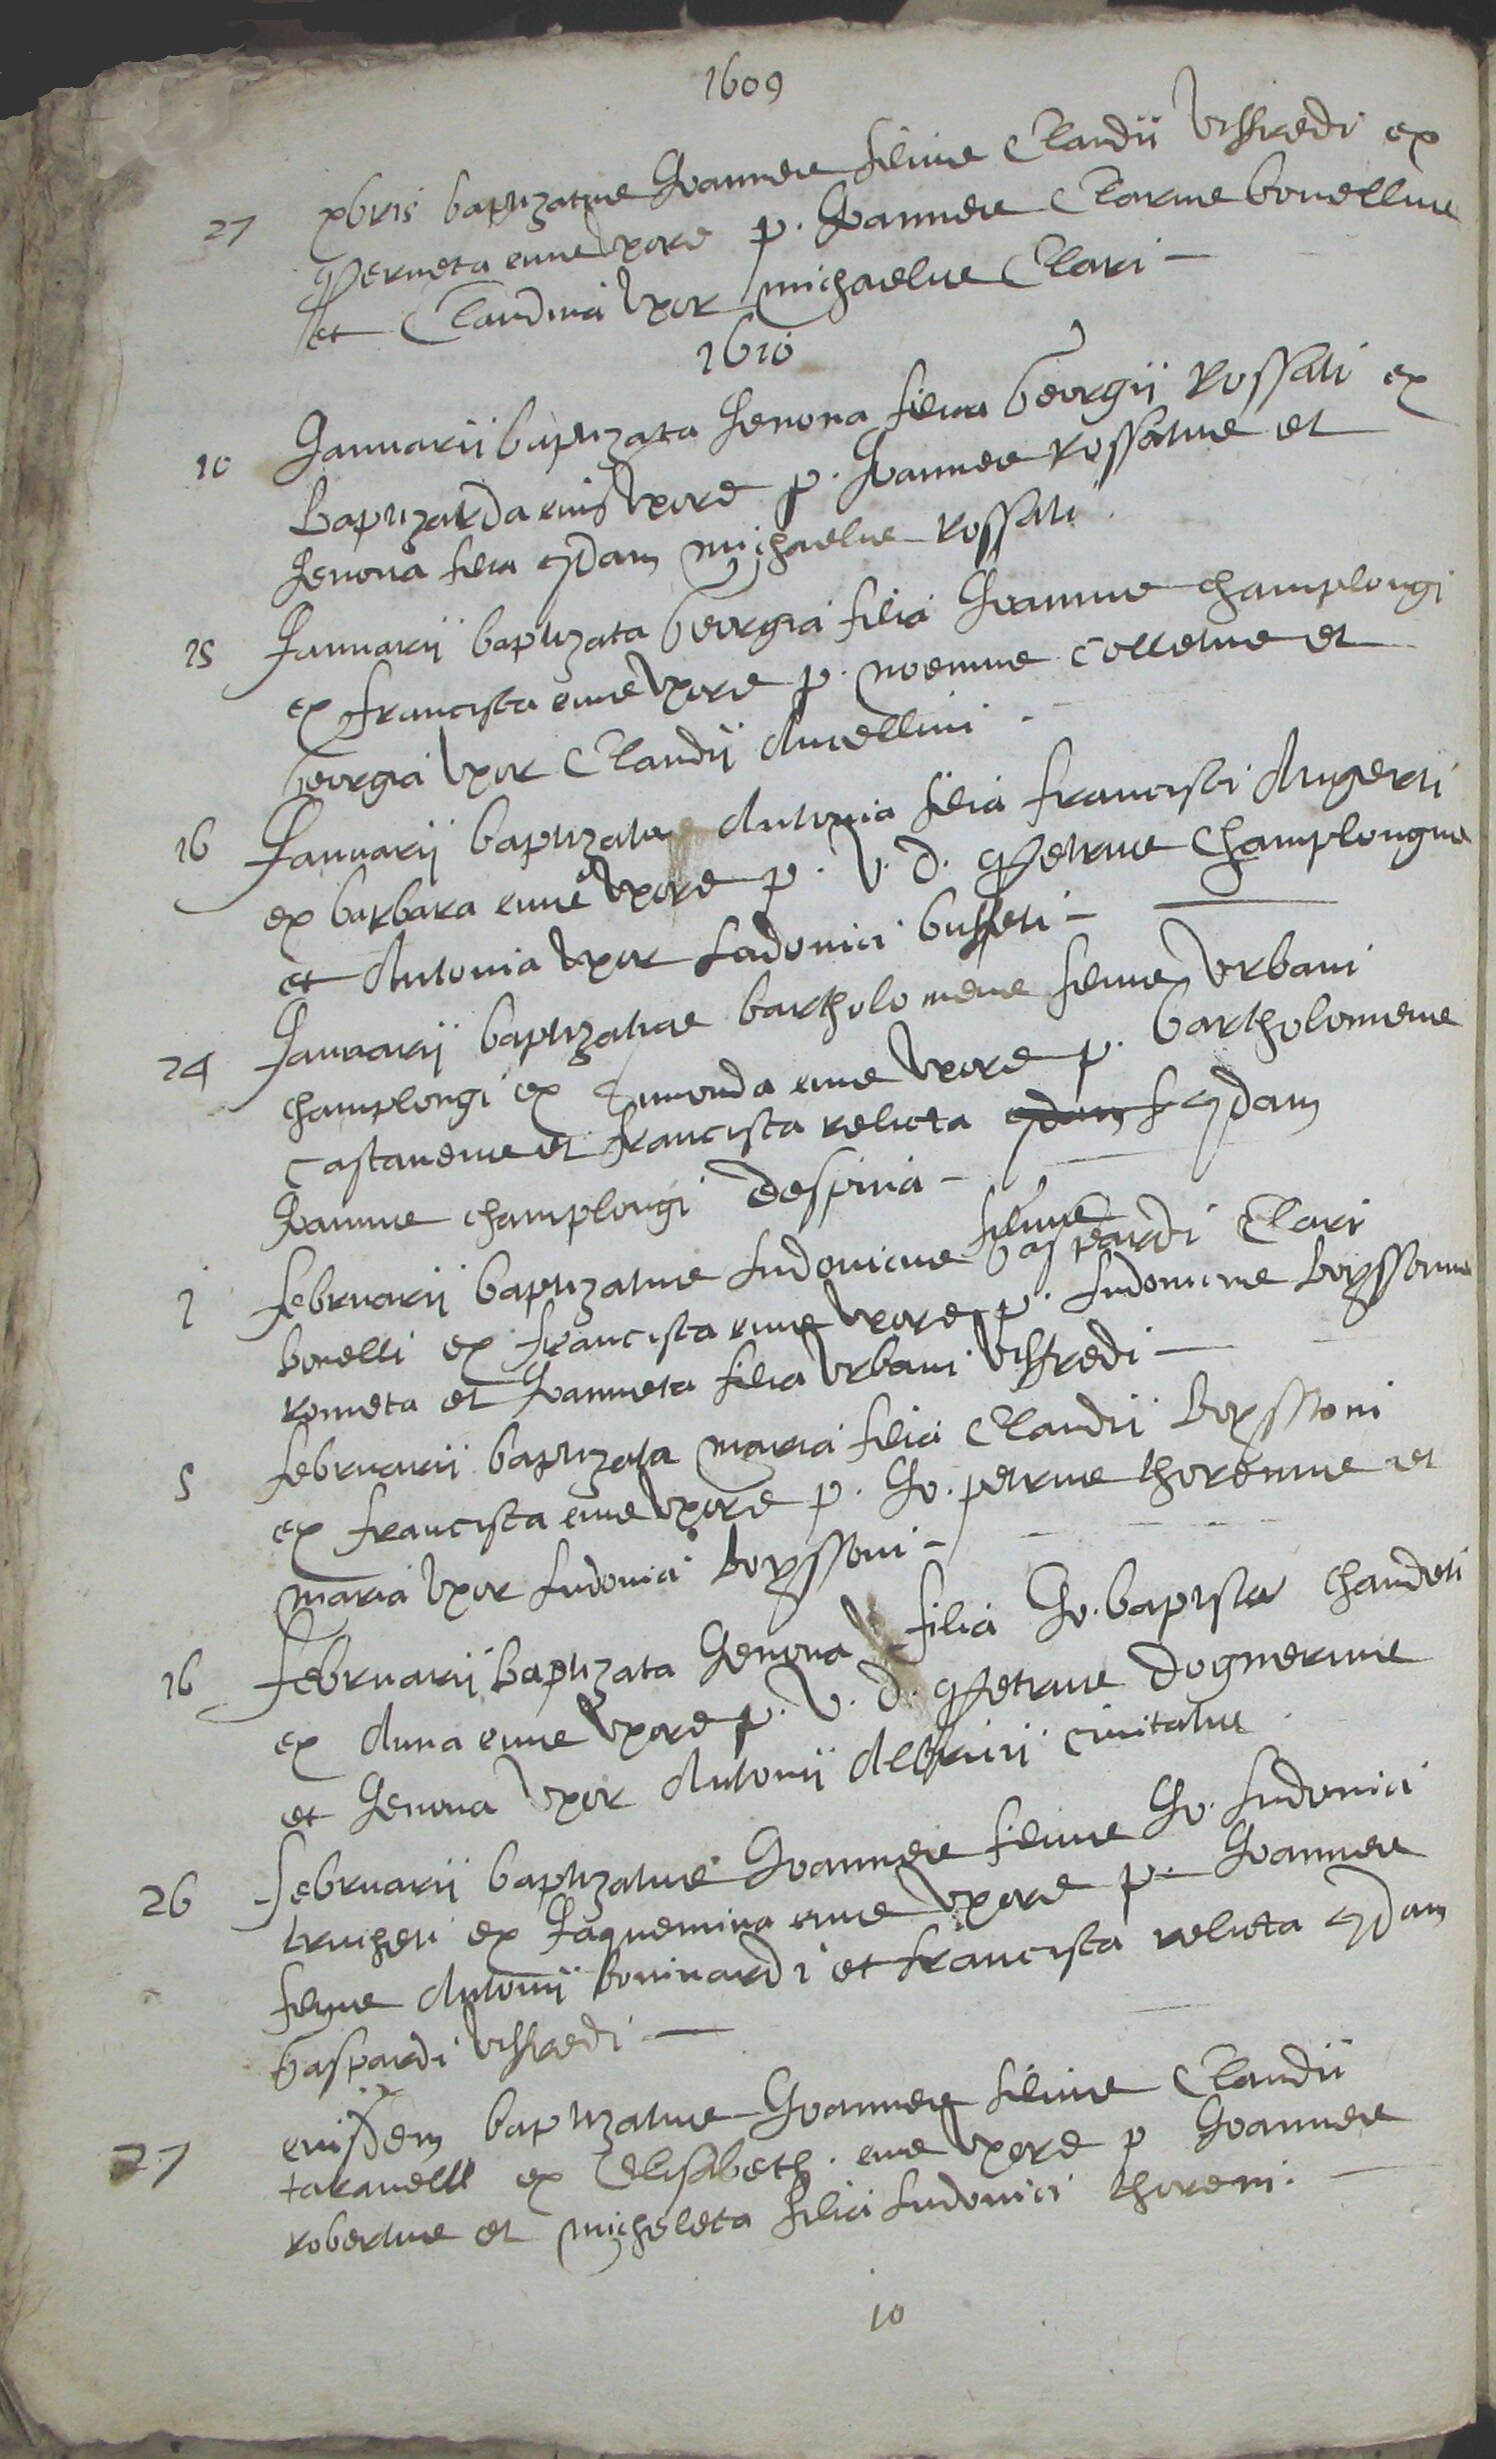 1609
27 xbris baptizatus Joannes filius Claudii Viffredi ex
Perneta eius uxore p. Joannes Clarus bonellus
et Claudina uxor michaelis Clari -
1610
10 Januarii baptizata Jenona filia Georgii Rossati ex
baptizarda eius uxore p. Joannes Rossatus et
Jenona filia qdam michaelis Rossati
15 Januarii baptizata Georgia filia Joannis champlongi
ex francisca eius uxore p. noemus Colletus et
Georgia uxor Claudii Aucellini -
16 Januarii baptizata Antonia filia francisci Augerii
ex barbara eius uxore p. V. D. Petrus Champlongus
et Antonia uxor Ladonici buffeti -
24 Januarii baptizatus bartholomeus filius Urbani
champlongi ex Simonda eius uxore p. bartholomeus
Castaneus et francisca relicta qdam f qdam
Joannis champlongi despina -
filius
1 februarii baptizatus Ludonicus Gaspardi Clari
bonelli ex francisca eius uxore p. Ludonicus boyssonus
rometa et Joanneta filia Urbani Viffredi -
5 februarii baptizata maria filia Claudii boyssoni
ex francisca eius uxore p. Jo. petrus thorenus et
maria uxor Ludonici boyssoni -
16 februarii baptizata Genona filia Jo. baptistae chandeti
ex Anna eius uxore p. V. D. Petrus Dognerius
et Jenona uxor Antonii civitatis
26 februarii baptizatus Joannes filius Jo. Ludonici
trucheti ex Jaquemina eius uxore p. Joannes
filius Antonii boninardi et francisca relicta qdam
Gaspardi Viffredi -
27 eiusdem baptizatus Joannes filius Claudii
taravelli ex Elisabeth. eius uxore p Joannes
robertus et micheleta filia Ludonici thoreni. -
10